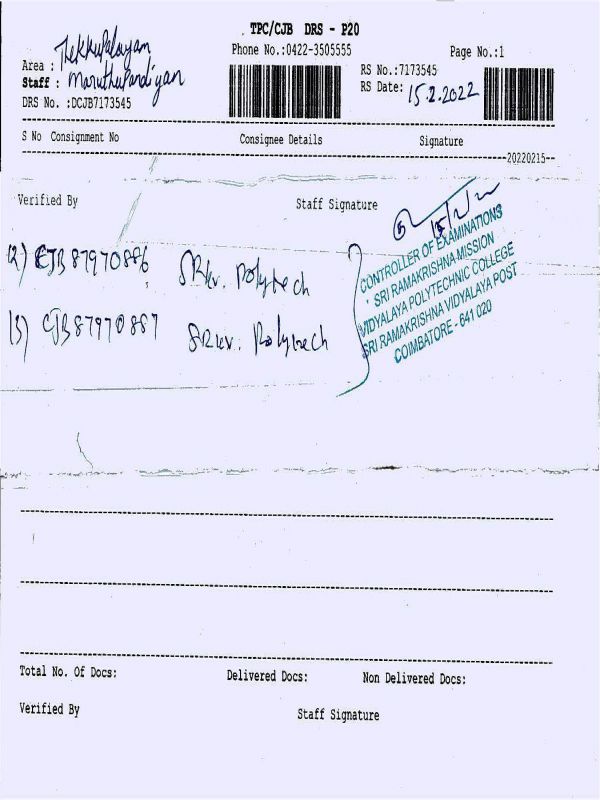 TPC/CJB DRS - P20
Phone No.:0422-3505555
Page No.:1
Area : Thekkupalayam
Staff : Maruthupandiyan
DRS No. :DCJB7173545
RS No.:7173545
RS Date: 15.2.2022
S No Consignment No Consignee Details Signature
20220215
Verified By Staff Signature
15/2/22
12) CJB87970886 SRkv. Polytech
13) CJB87970887 SRkv. Polytech
CONTROLLER OF EXAMINATIONS
SRI RAMAKRISHNA MISSION
VIDYALAYA POLYTECHNIC COLLEGE
SRI RAMAKRISHNA VIDYALAYA POST
COIMBATORE - 641 020
Total No. Of Docs: Delivered Docs: Non Delivered Docs:
Verified By Staff Signature